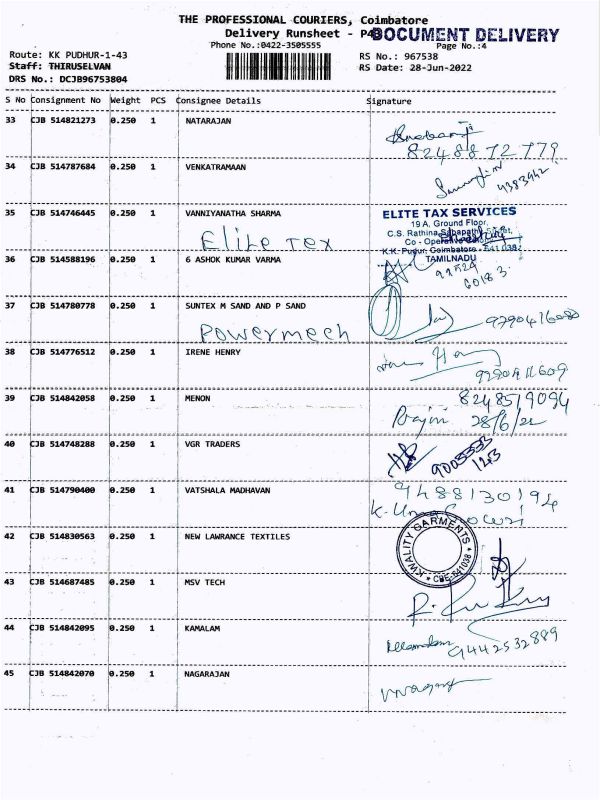 THE PROFESSIONAL COURIERS, Coimbatore
Delivery Runsheet - P4
DOCUMENT DELIVERY
Phone No.:0422-3505555
Page No.:4
Route: KK PUDHUR-1-43
RS No.: 967538
Staff: THIRUSELVAN
RS Date: 28-Jun-2022
DRS No.: DCJB96753804
S No Consignment No Weight PCS Consignee Details Signature
33 CJB 514821273 0.250 1 NATARAJAN
8248872779
34 CJB 514787684 0.250 1 VENKATRAMAAN
4383942
35 CJB 514746445 0.250 1 VANNIYANATHA SHARMA
Elite Tex
ELITE TAX SERVICES
19 A, Ground Floor,
C.S. Rathina Sabapathi Street,
Co - Operative Colony
K.K. Pudur, Coimbatore - 641 038.
TAMILNADU
36 CJB 514588196 0.250 1 6 ASHOK KUMAR VARMA
99524
00183
37 CJB 514780778 0.250 1 SUNTEX M SAND AND P SAND
Powermech
38 CJB 514776512 0.250 1 IRENE HENRY
39 CJB 514842058 0.250 1 MENON
8248519094
28/6/22
40 CJB 514748288 0.250 1 VGR TRADERS
41 CJB 514790400 0.250 1 VATSHALA MADHAVAN
9488130194
42 CJB 514830563 0.250 1 NEW LAWRANCE TEXTILES
KWALITY GARMENTS
CBE-641038
43 CJB 514687485 0.250 1 MSV TECH
44 CJB 514842095 0.250 1 KAMALAM
9442532889
45 CJB 514842070 0.250 1 NAGARAJAN